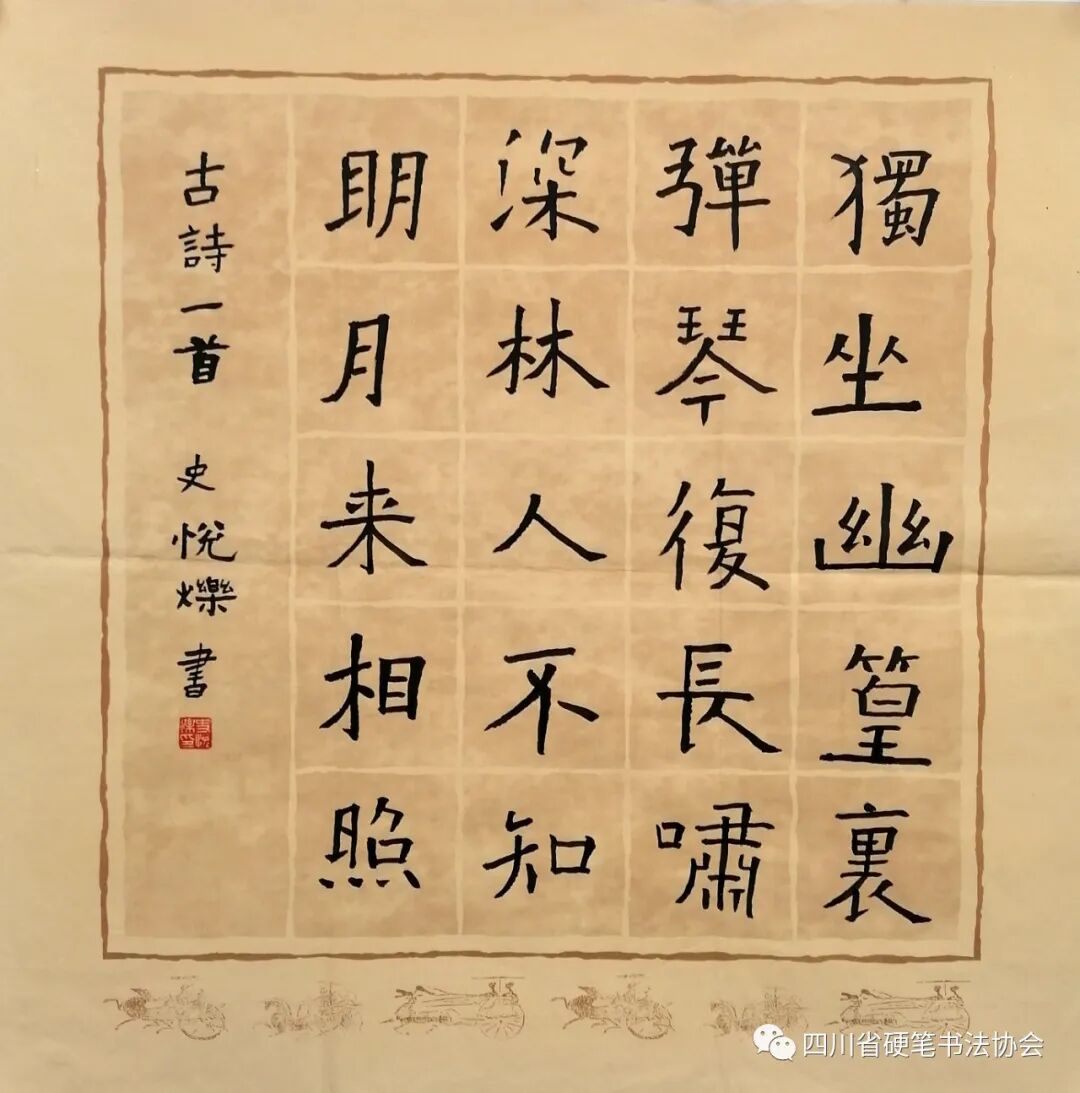 獨坐幽篁裏
彈琴復長嘯
深林人不知
明月来相照
古詩一首 史悅爍書
四川省硬笔书法协会